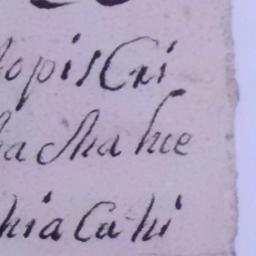 topis Cri
ha cha hie
hia Ca hi